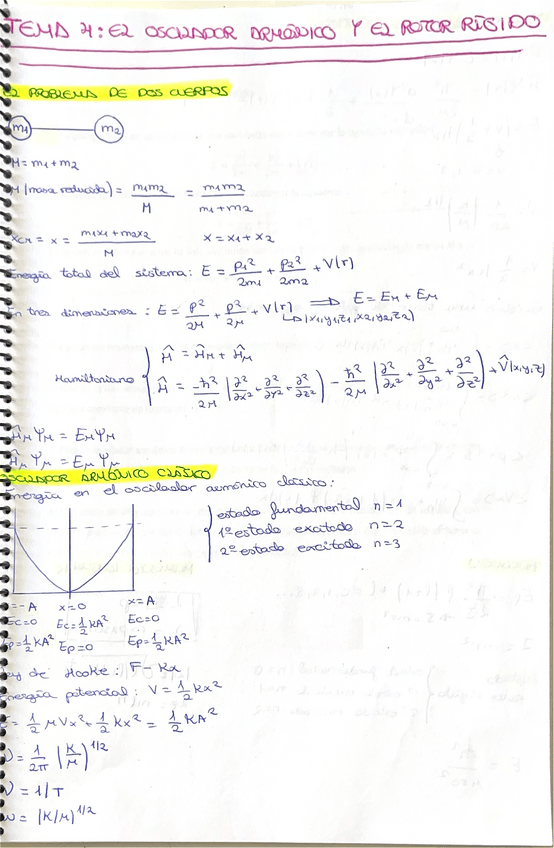 TEMA 4: El OSCILADOR ARMÓNICO Y El ROTOR RÍGIDO
El PROBLEMA DE DOS CUERPOS
m₁ m₂
M = m₁ + m₂
μ (masa reducida) = m₁m₂ / M = m₁m₂ / m₁ + m₂
XCM = x = m₁x₁ + m₂x₂ / M x = x₁ + x₂
Energía total del sistema: E = p₁²/2m₁ + p₂²/2m₂ + V(r)
En tres dimensiones: E = p²/2M + p²/2μ + V(r) ⟹ E = EM + Eμ
↳(x₁,y₁,z₁,x₂,y₂,z₂)
Hamiltoniano { Ĥ = ĤM + Ĥμ
Ĥ = -ħ²/2M (∂²/∂x² + ∂²/∂y² + ∂²/∂z²) - ħ²/2μ (∂²/∂x² + ∂²/∂y² + ∂²/∂z²) + V̂(x,y,z)
ĤMΨM = EMΨM
ĤμΨμ = EμΨμ
OSCILADOR ARMÓNICO CLÁSICO
Energía en el oscilador armónico clásico:
estado fundamental n=1
1º estado excitado n=2
2º estado excitado n=3
x=-A x=0 x=A
Ec=0 Ec=½KA² Ec=0
Ep=½KA² Ep=0 Ep=½KA²
Ley de Hooke: F-Kx
Energía potencial: V = ½Kx²
E = ½μVx² + ½Kx² = ½KA²
ν = 1/2π (K/μ)^1/2
ν = 1/T
w = (K/μ)^1/2